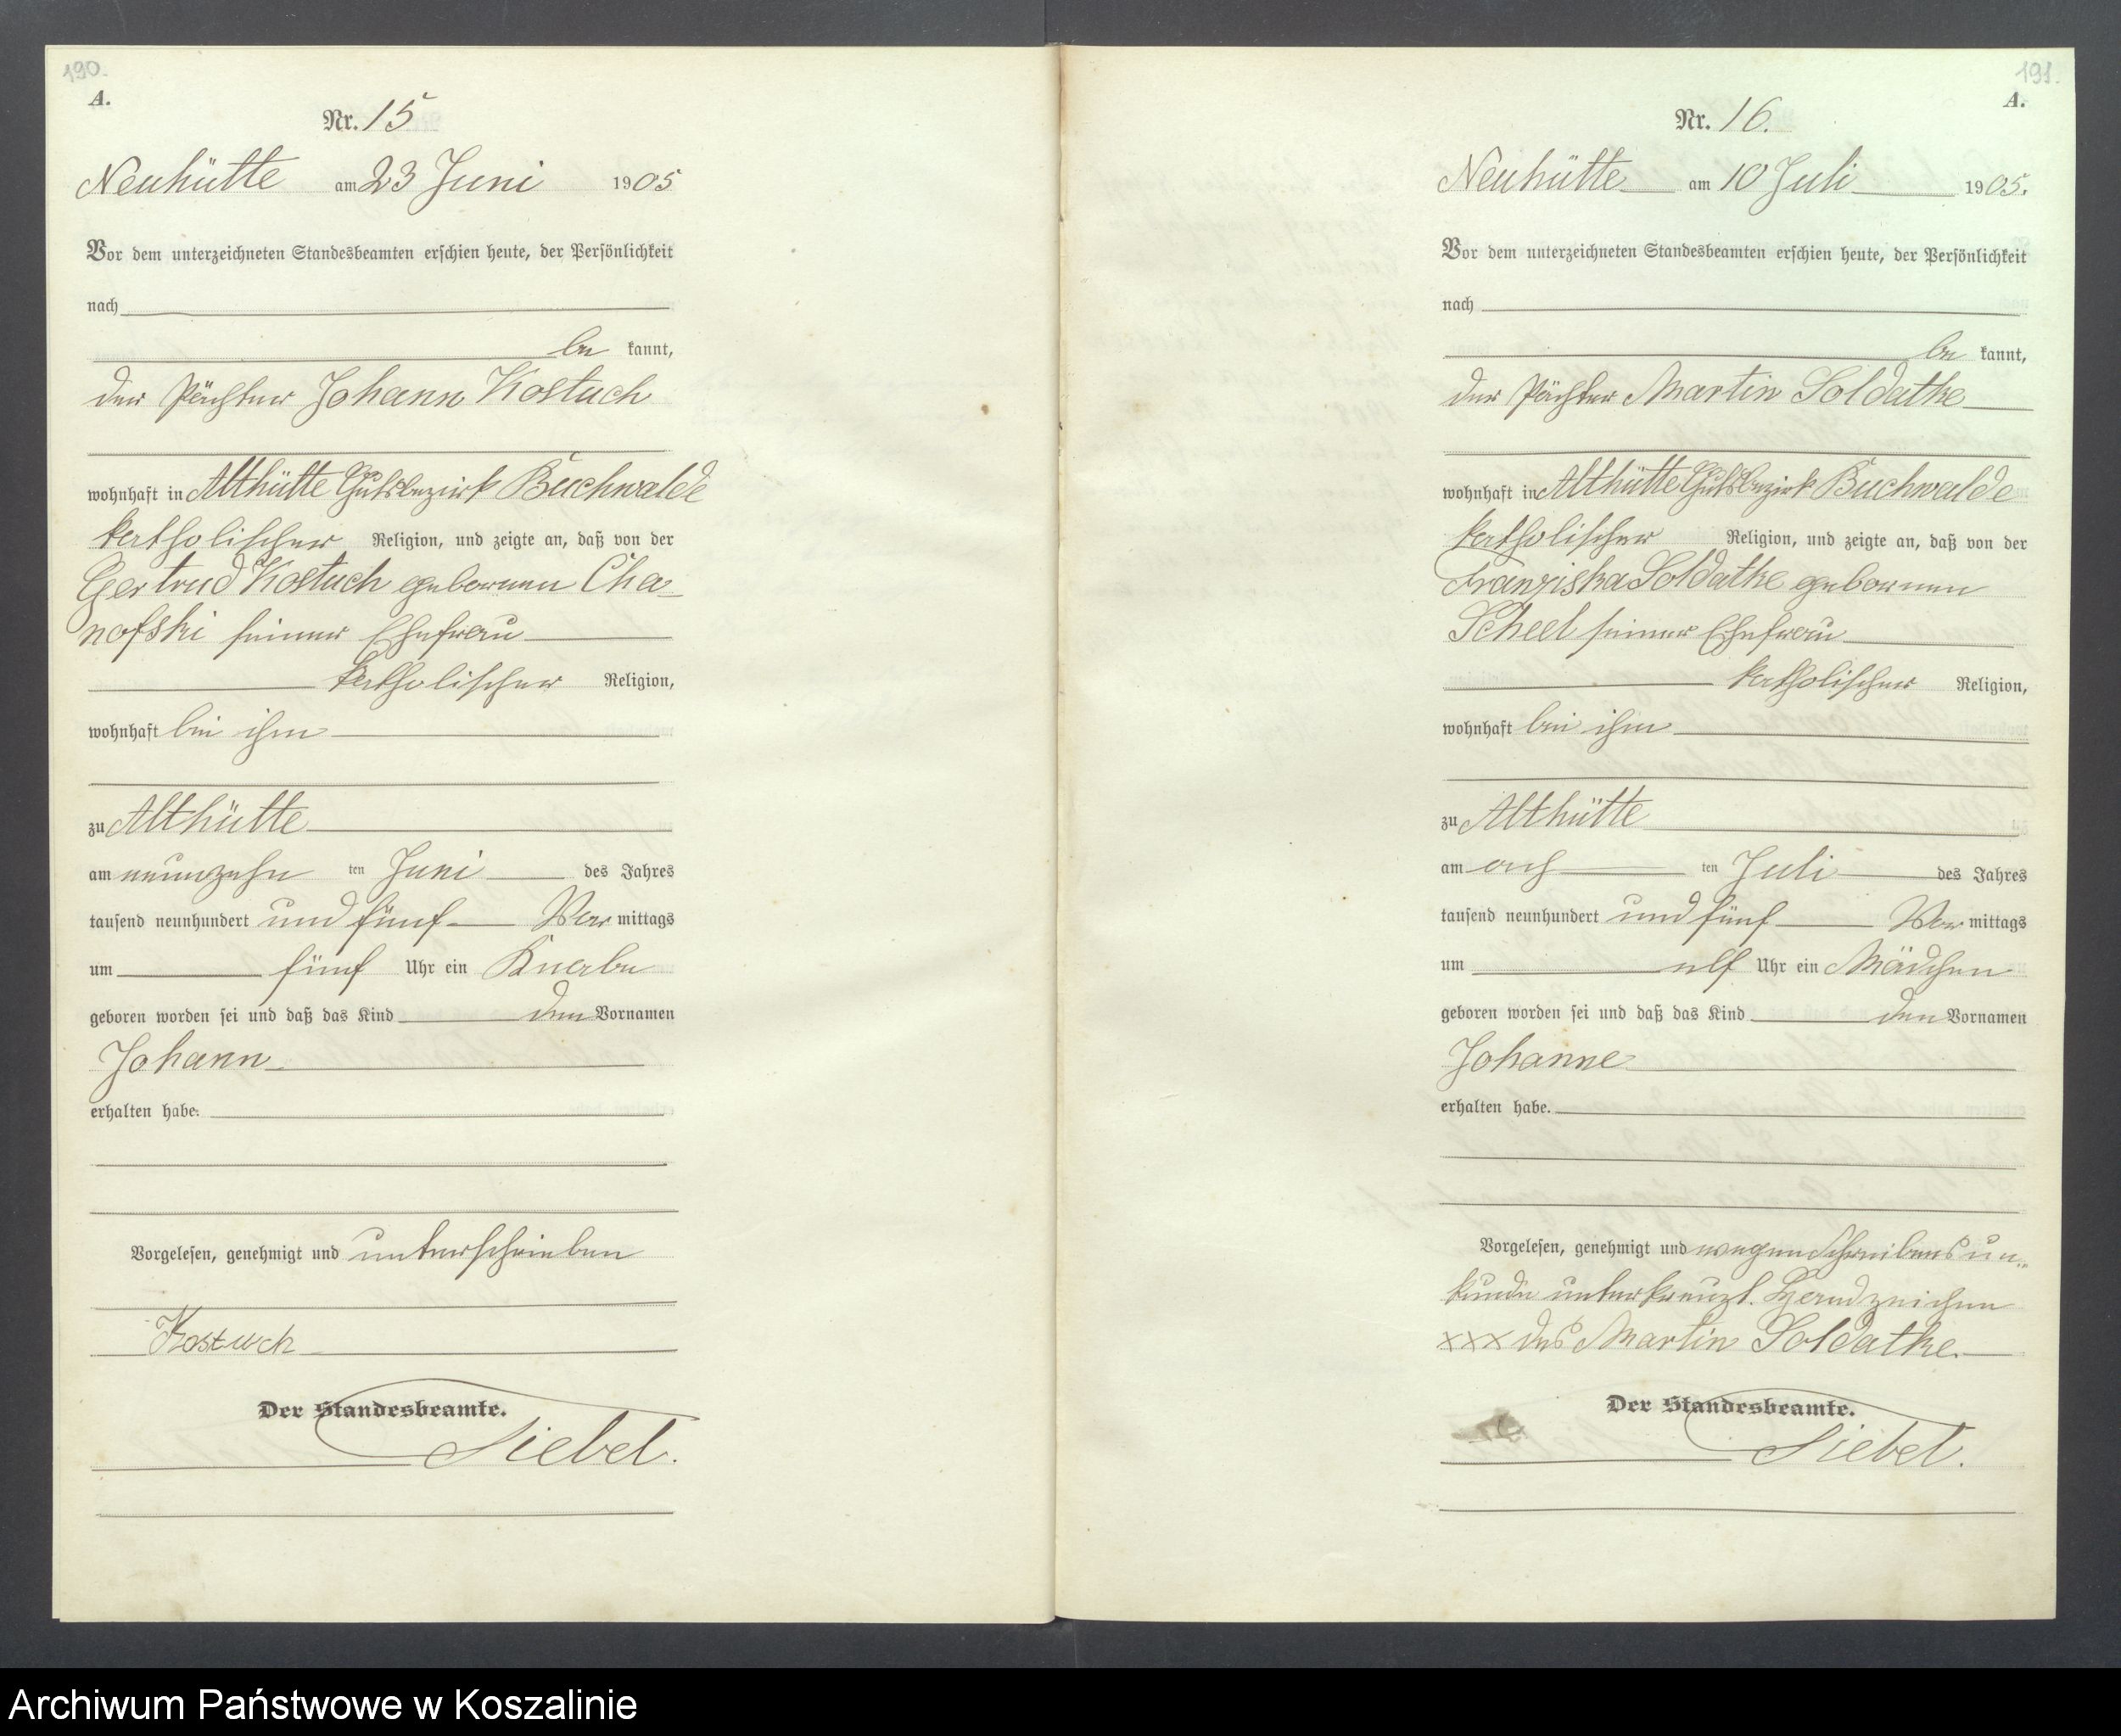 190.
A.
Nr. 15
Neuhütte am 23 Juni 1905
Vor dem unterzeichneten Standesbeamten erschien heute, der Persönlichkeit
nach
be kannt,
der Pächter Johann Kostuch
wohnhaft in Althütte Gutsbezirk Buchwalde
katholischer Religion, und zeigte an, daß von der
Gertrud Kostuch geborenen Cha-
nofski seiner Ehefrau
katholischer Religion,
wohnhaft bei ihm
zu Althütte
am neunzehn ten Juni des Jahres
tausend neunhundert und fünf Vor mittags
um fünf Uhr ein Knabe
geboren worden sei und daß das Kind den Vornamen
Johann
erhalten habe.
Vorgelesen, genehmigt und unterschrieben
Kostuch
Der Standesbeamte.
Siebel.
191.
A.
Nr. 16.
Neuhütte am 10 Juli 1905.
Vor dem unterzeichneten Standesbeamten erschien heute, der Persönlichkeit
nach
be kannt,
der Pächter Martin Soldatke
wohnhaft in Althütte Gutsbezirk Buchwalde
katholischer Religion, und zeigte an, daß von der
Franziska Soldatke geborenen
Scheel seiner Ehefrau
katholischer Religion,
wohnhaft bei ihm
zu Althütte
am ach ten Juli des Jahres
tausend neunhundert und fünf Vor mittags
um elf Uhr ein Mädchen
geboren worden sei und daß das Kind den Vornamen
Johanne
erhalten habe.
Vorgelesen, genehmigt und wegen Schreibens un-
kunde unterkreuzt. Handzeichen
xxx des Martin Soldatke.
Der Standesbeamte.
Siebel.
Archiwum Państwowe w Koszalinie